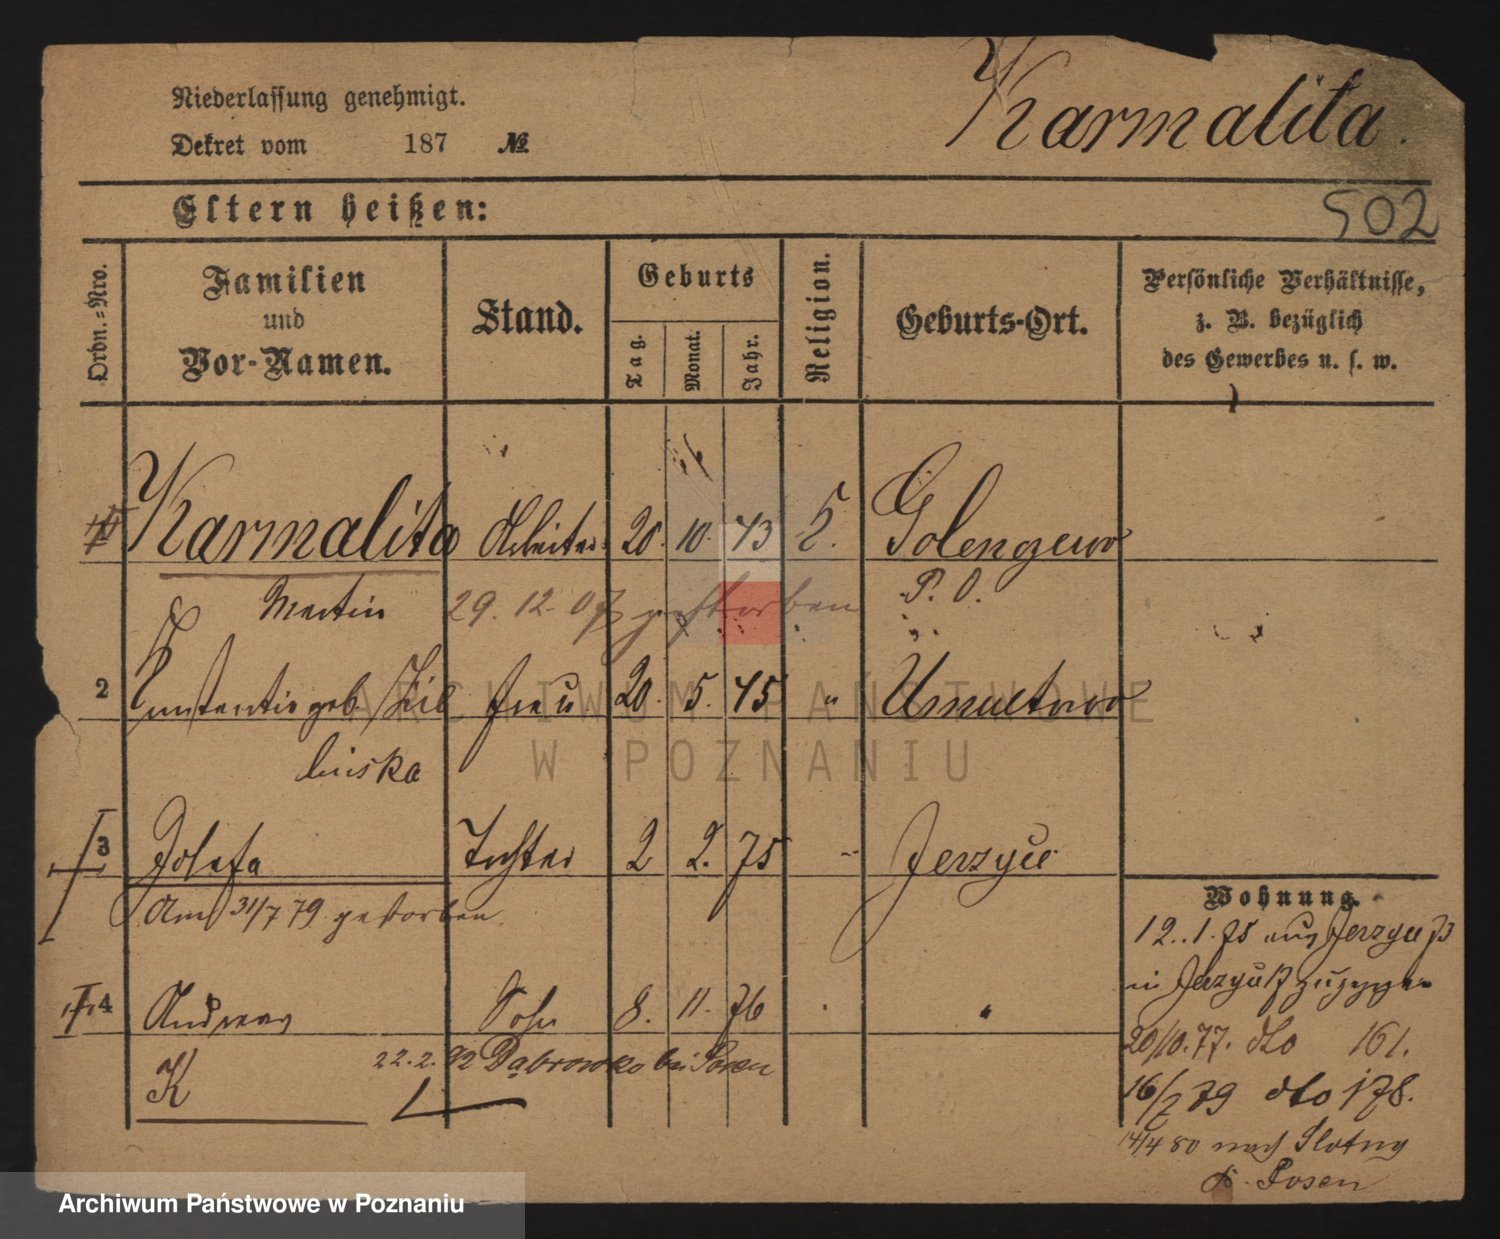 Niederlassung genehmigt.
Karmalita.
Dekret vom 187 №
Eltern heißen:
502
Ordn.=Nro.
Familien
und
Vor-Namen.
Stand.
Geburts
Tag.
Monat.
Jahr.
Religion.
Geburts-Ort.
Persönliche Verhältnisse,
z. B. bezüglich
des Gewerbes u. s. w.
Karmalita Arbeiter 20. 10. 43 Golengewo
Martin 29. 12. 07 gestorben P. O.
2 geb. Frau 20. 5. 45 "
ARCHIWUM PAŃSTWOWE
W POZNANIU
linska
3 Josefa Tochter 2 2. 75 Jerzyce
Am 31/7 79 gestorben
Wohnung.
12. 1. 75 aus Jerzyce 73
in Jerzyce zugezogen
4 Andreas Sohn 8. 11. 76 "
20/10. 77. dto 161.
K 22. 2. 92 Dąbrowko bei Posen
16/7 79 dto 178.
14/4 80 nach
b. Posen
Archiwum Państwowe w Poznaniu